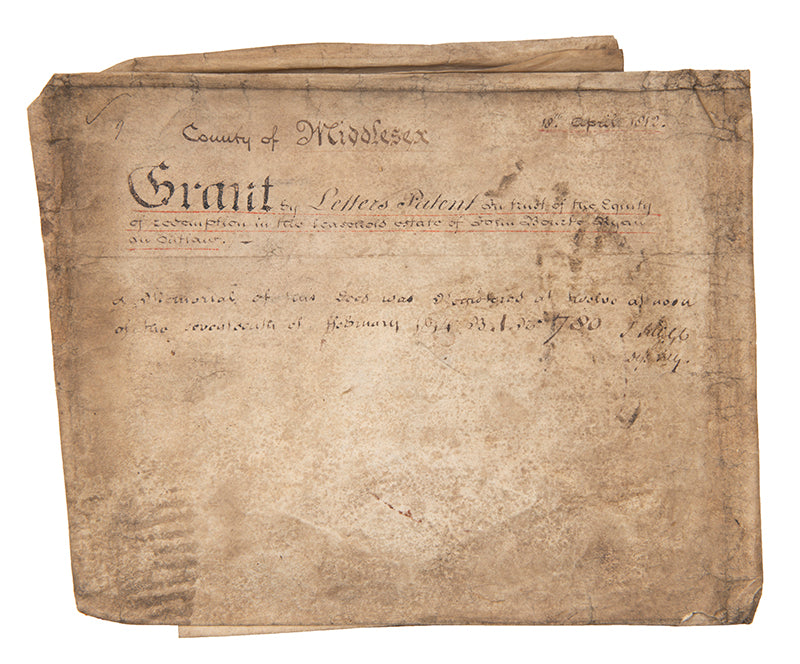 County of Middlesex
18th April 1812.
Grant by Letters Patent in trust of the Equity
of redemption in the leasehold estate of John Bourke Ryan
an Outlaw. —
A Memorial of this Deed was Registered at twelve at noon
of the seventeenth of ffebruary 1814 B. 1. No 780